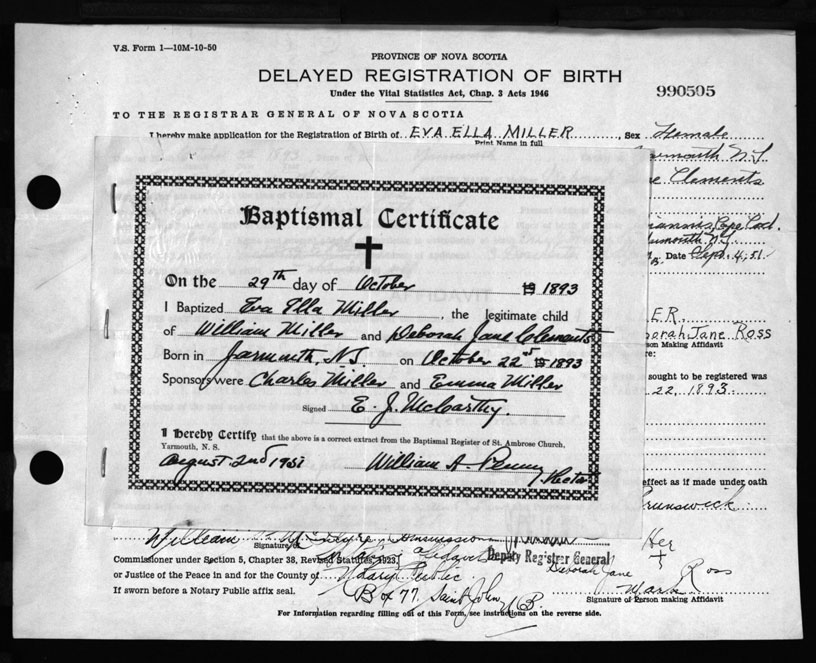 V.S. Form 1—10M-10-50
PROVINCE OF NOVA SCOTIA
DELAYED REGISTRATION OF BIRTH
Under the Vital Statistics Act, Chap. 3 Acts 1946
990505
TO THE REGISTRAR GENERAL OF NOVA SCOTIA
I hereby make application for the Registration of Birth of EVA ELLA MILLER, Sex Female
Print Name in full
Clements
Cape Cod
Date Sept. 4, 51
Baptismal Certificate
On the 29th day of October 1893
I Baptized Eva Ella Miller, the legitimate child
of William Miller and Deborah Jane Clements
Born in Yarmouth, N.S. on October 22nd 1893
Sponsors were Charles Miller and Emma Miller
Signed E. J. McCarthy.
I Hereby Certify that the above is a correct extract from the Baptismal Register of St. Ambrose Church,
Yarmouth, N. S.
August 2nd 1951 William A. Penny
Rector
ER.
orah Jane Ross
son Making Affidavit
re:
sought to be registered was
22, 1893
effect as if made under oath
Brunswick
William
Signature of
Deputy Registrar General
Her
Commissioner under Section 5, Chapter 38, Revised Statutes, 1923,
or Justice of the Peace in and for the County of Notary Public
Deborah Jane Ross
Mark
If sworn before a Notary Public affix seal.
Box 77, Saint John, N.B.
Signature of Person making Affidavit
For Information regarding filling out of this Form, see instructions on the reverse side.